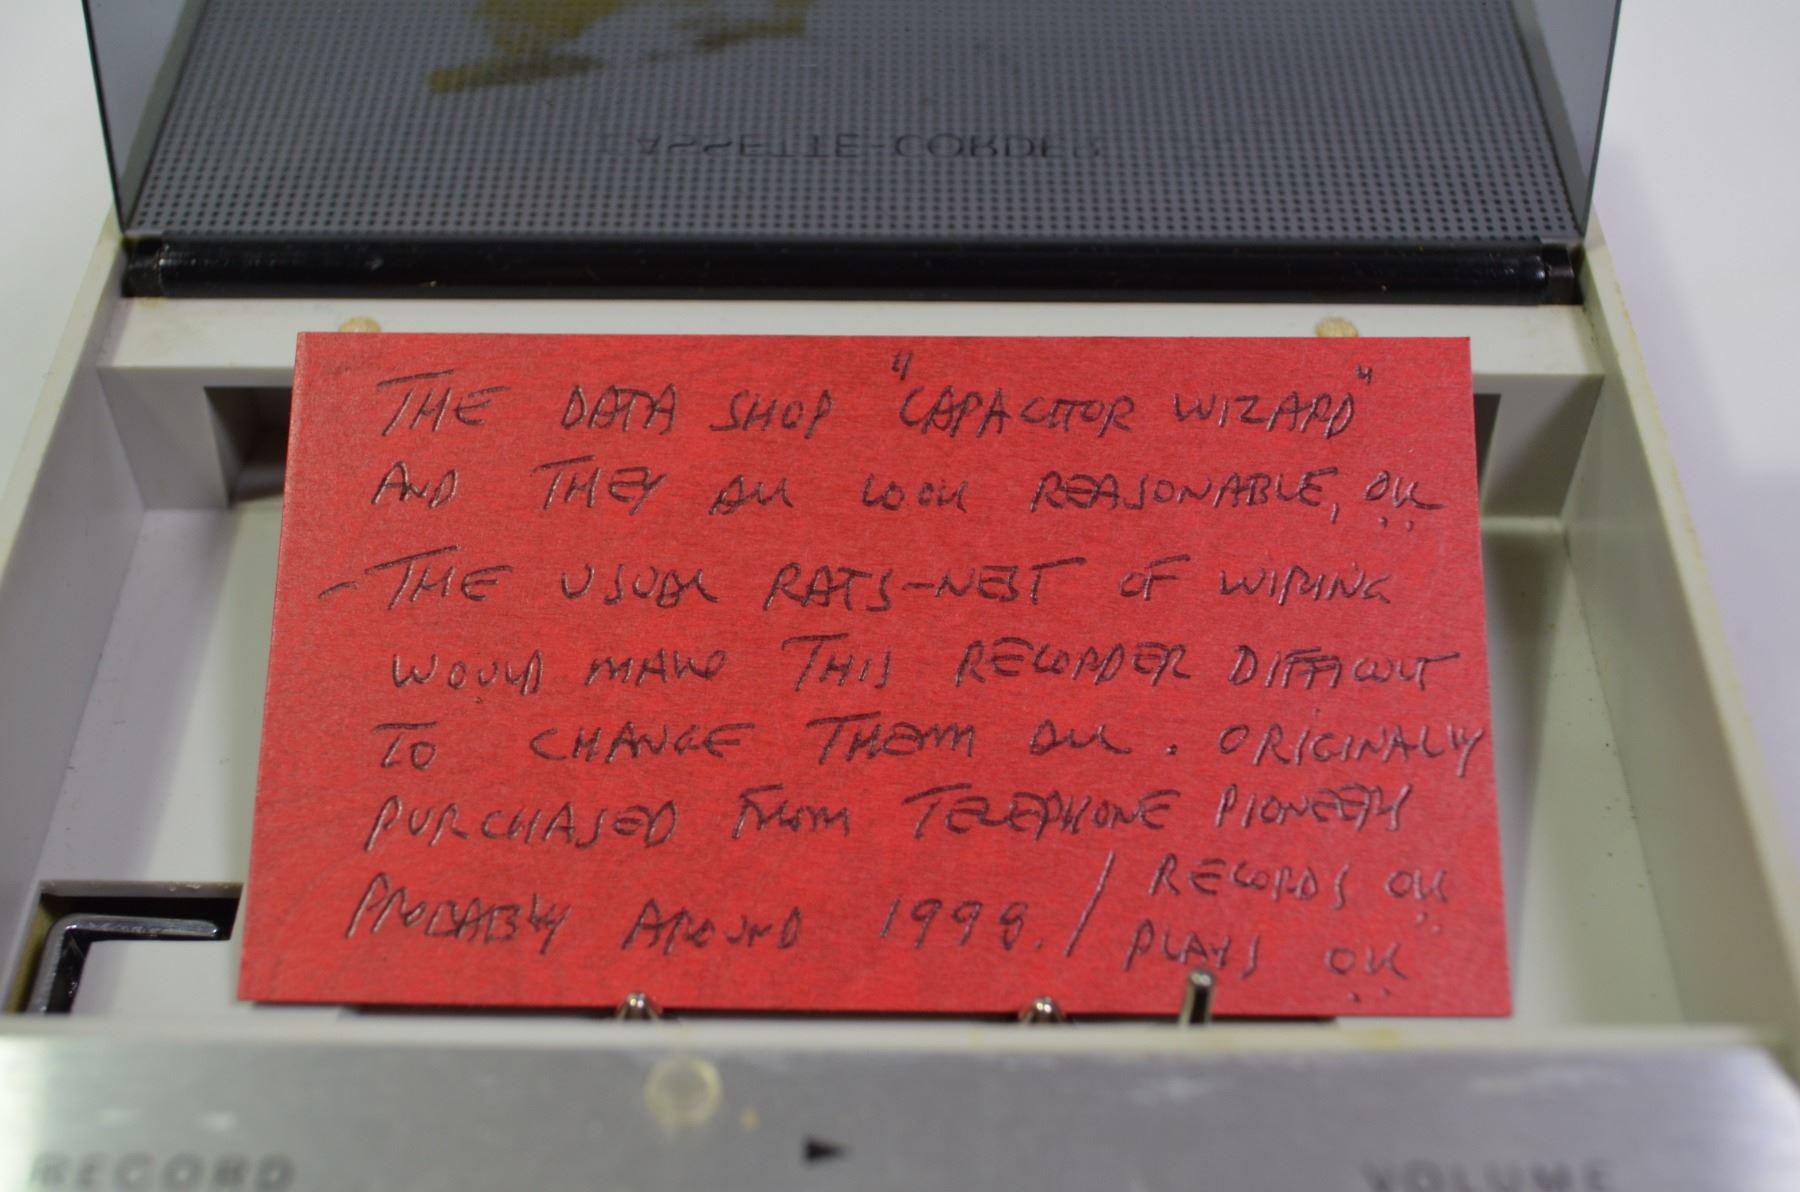 CASSETTE-CORDER
THE DATA SHOP "CAPACITOR WIZARD"
AND THEY ALL LOOK REASONABLE, OK
- THE USUAL RATS-NEST OF WIRING
WOULD MAKE THIS RECORDER DIFFICULT
TO CHANGE THEM ALL. ORIGINALLY
PURCHASED FROM TELEPHONE PIONEERS
PROBABLY AROUND 1998. / RECORDS OK
PLAYS OK
RECORD
VOLUME